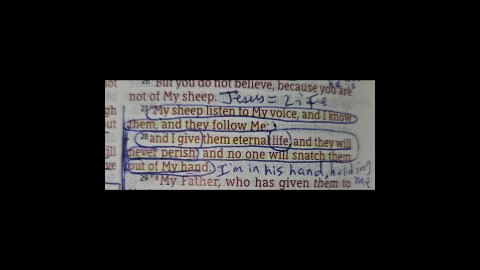 26 But you do not believe, because you are
not of My sheep. Jesus = Life
27 "My sheep listen to My voice, and I know
them, and they follow Me;
28 and I give them eternal life, and they will
never perish; and no one will snatch them
out of My hand. I'm in his hand, holding me
29 "My Father, who has given them to